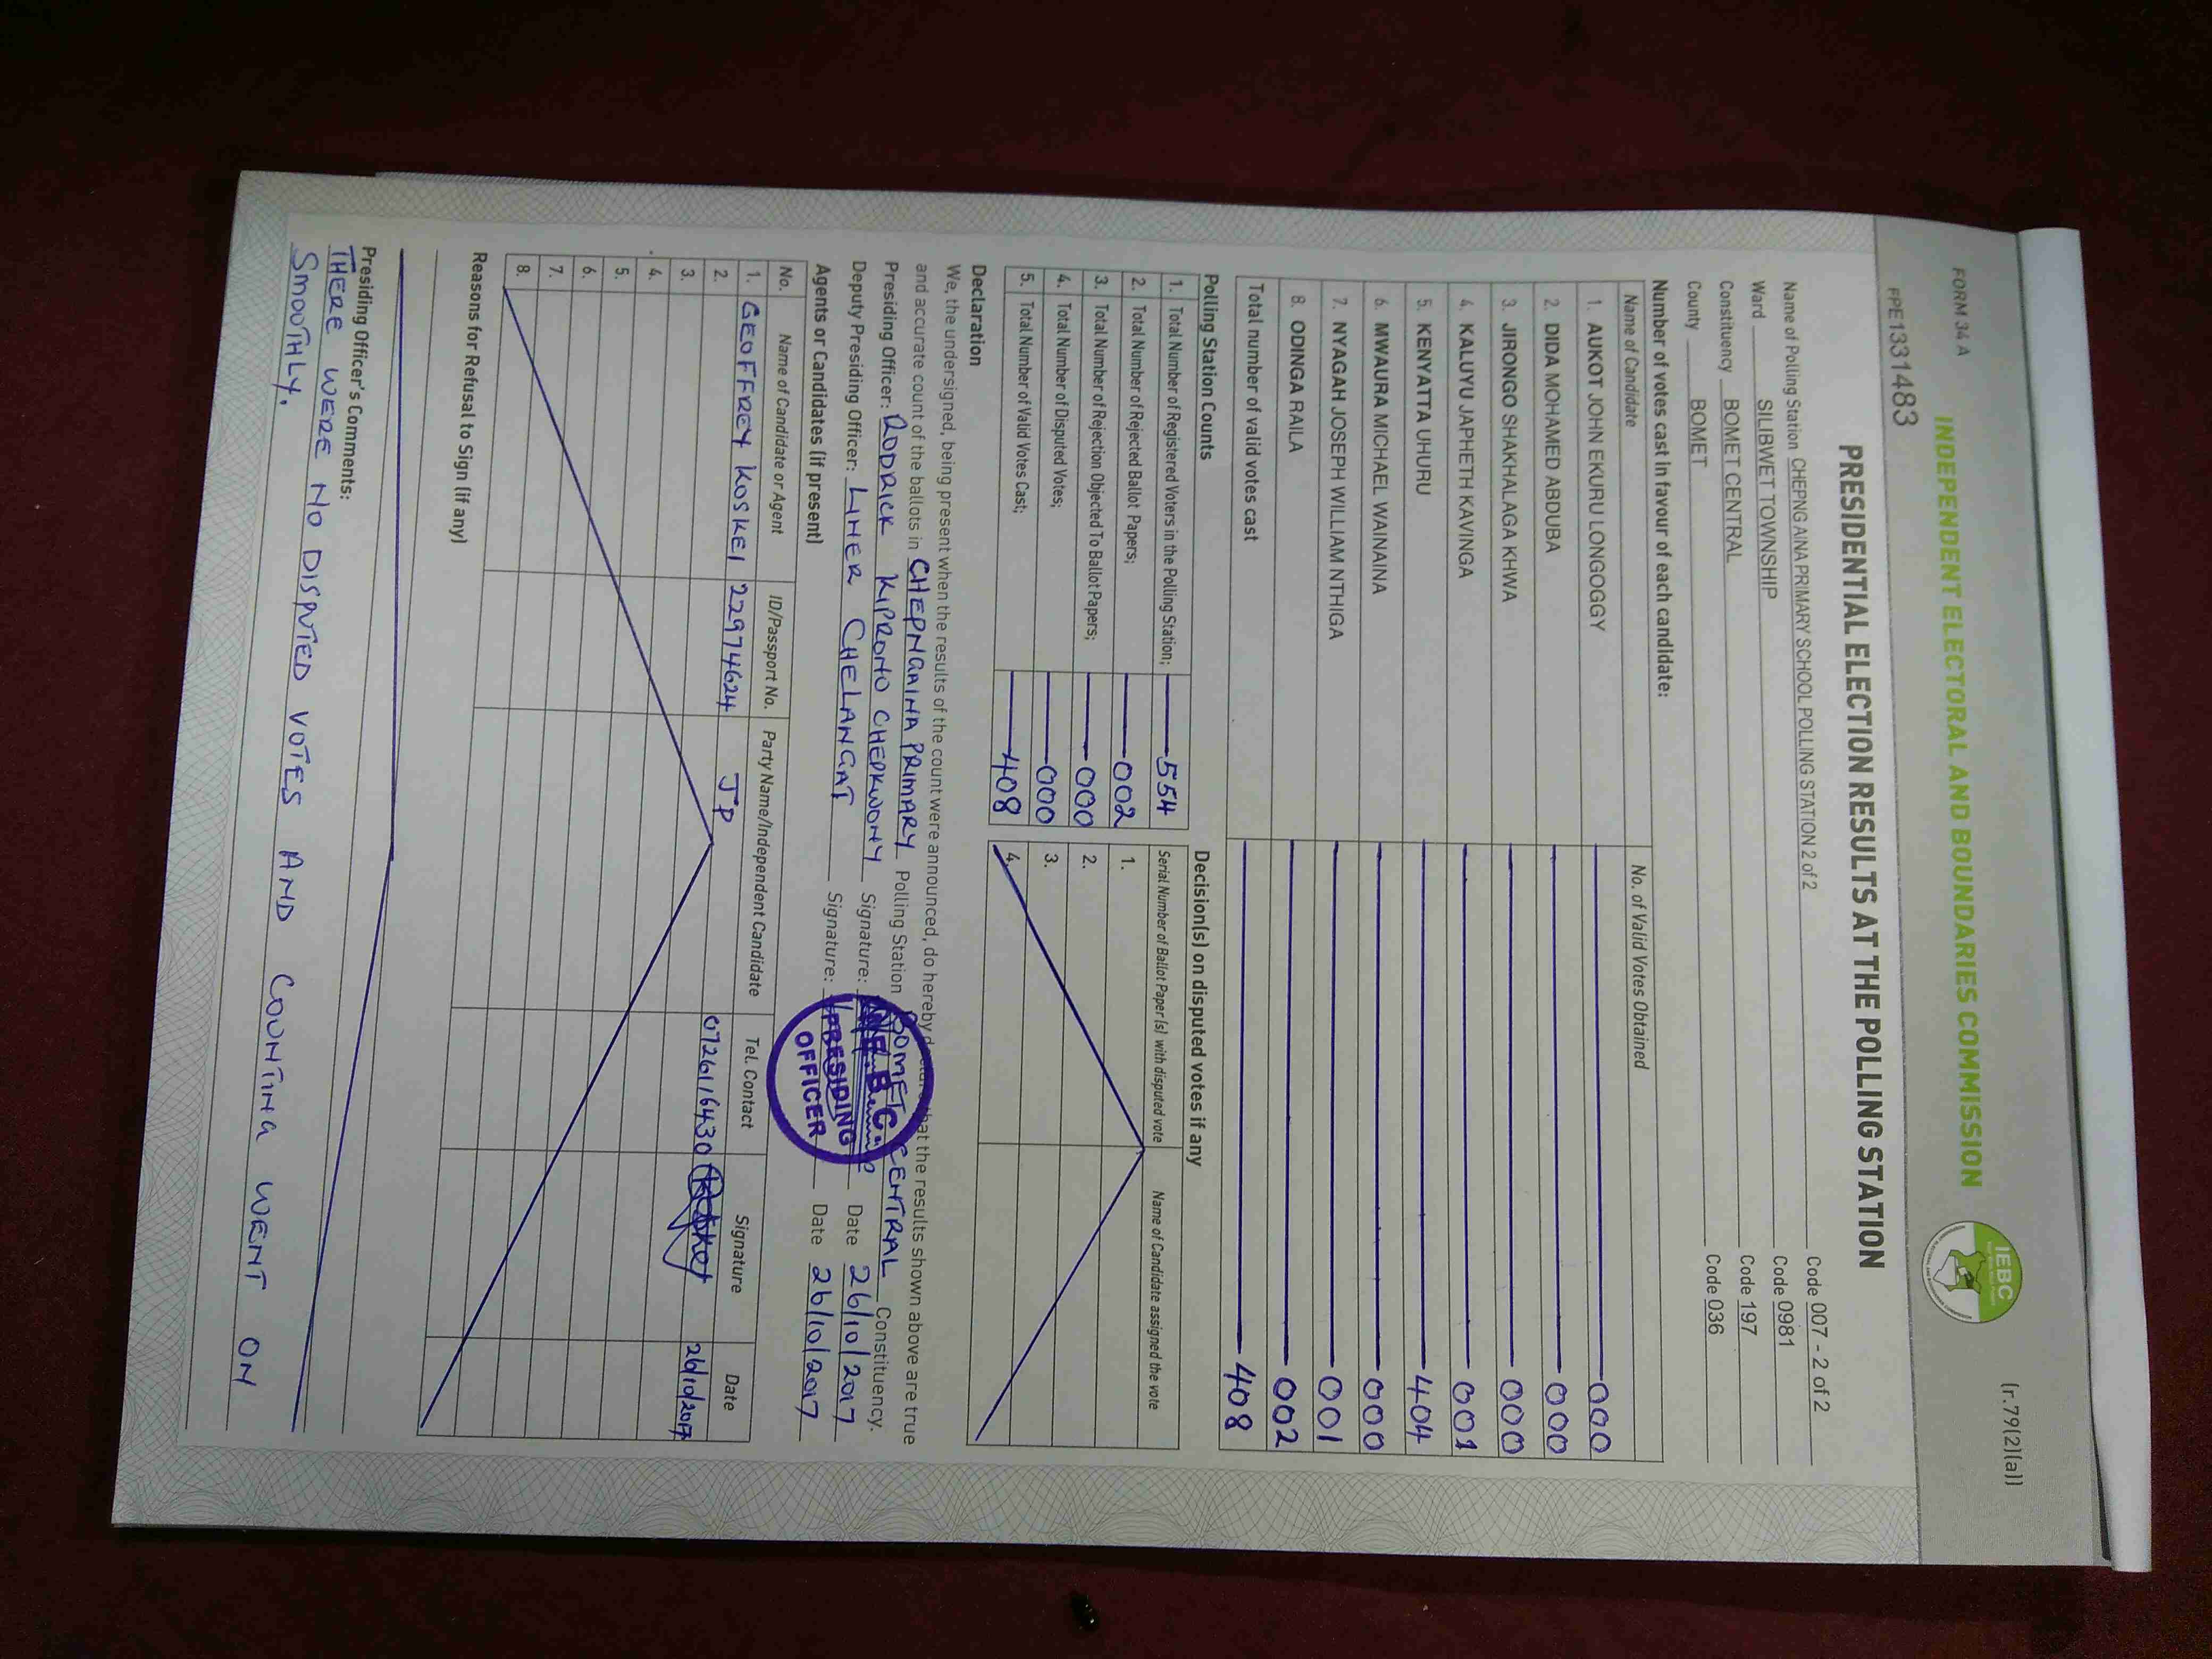 FORM 34 A
(r.79(2)(a))
INDEPENDENT ELECTORAL AND BOUNDARIES COMMISSION
IEBC
FPE1331483
PRESIDENTIAL ELECTION RESULTS AT THE POLLING STATION
Name of Polling Station CHEPNG AINA PRIMARY SCHOOL POLLING STATION 2 of 2 Code 007 - 2 of 2
Ward SILIBWET TOWNSHIP Code 0981
Constituency BOMET CENTRAL Code 197
County BOMET Code 036
Number of votes cast in favour of each candidate:
Name of Candidate No. of Valid Votes Obtained
1. AUKOT JOHN EKURU LONGOGGY 000
2. DIDA MOHAMED ABDUBA 000
3. JIRONGO SHAKHALAGA KHWA 000
4. KALUYU JAPHETH KAVINGA 001
5. KENYATTA UHURU 404
6. MWAURA MICHAEL WAINAINA 000
7. NYAGAH JOSEPH WILLIAM NTHIGA 001
8. ODINGA RAILA 002
Total number of valid votes cast 408
Polling Station Counts
1. Total Number of Registered Voters in the Polling Station; 554
2. Total Number of Rejected Ballot Papers; 002
3. Total Number of Rejection Objected To Ballot Papers; 000
4. Total Number of Disputed Votes; 000
5. Total Number of Valid Votes Cast; 408
Decision(s) on disputed votes if any
Serial Number of Ballot Paper (s) with disputed vote Name of Candidate assigned the vote
1.
2.
3.
4.
Declaration
We, the undersigned, being present when the results of the count were announced, do hereby declare that the results shown above are true
and accurate count of the ballots in CHEPNGAINA PRIMARY Polling Station BOMET CENTRAL Constituency.
Presiding Officer: RODRICK KIPRONO CHEPKWONY Signature: Date 26/10/2017
Deputy Presiding Officer: LIHER CHELANGAT Signature: Date 26/10/2017
I.E.B.C.
PRESIDING
OFFICER
Agents or Candidates (if present)
No. Name of Candidate or Agent ID/Passport No. Party Name/Independent Candidate Tel. Contact Signature Date
1. GEOFFREY KOSKEI 22974624 JP 0726116430 26/10/2017
2.
3.
4.
5.
6.
7.
8.
Reasons for Refusal to Sign (if any)
Presiding Officer's Comments:
THERE WERE NO DISPUTED VOTES AND COUNTING WENT ON
SMOOTHLY.